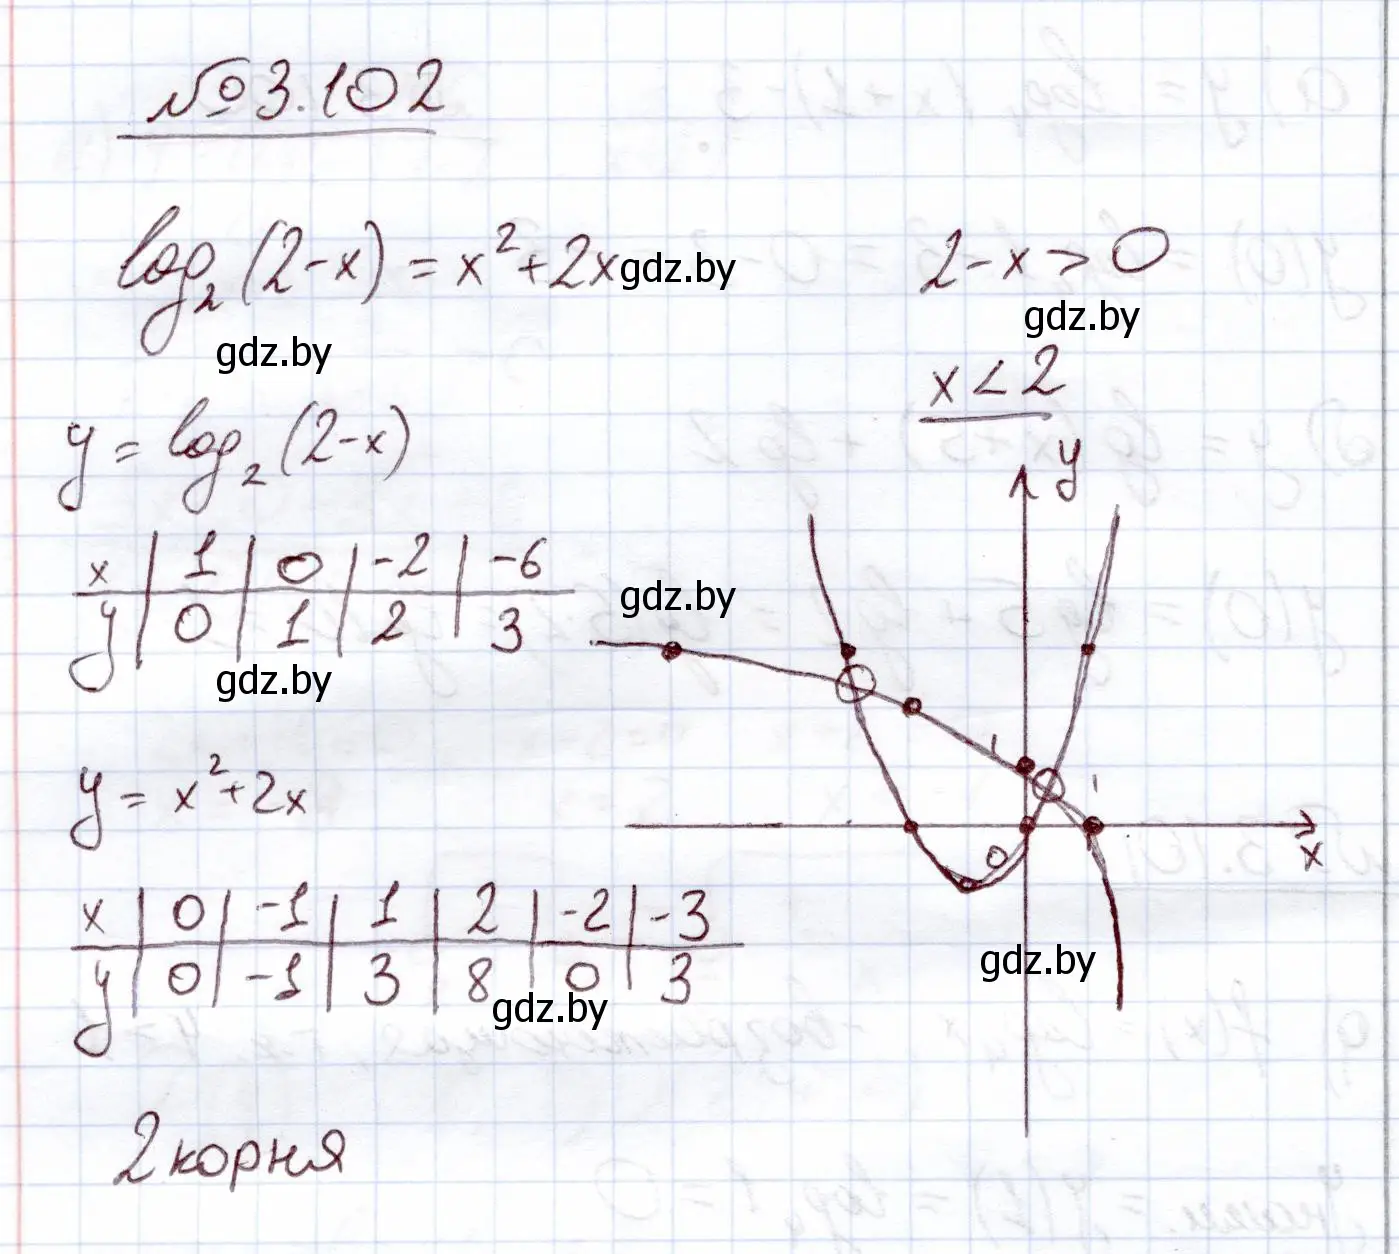 №3.102
log₂(2-x) = x²+2x
gdz.by
2-x > 0
gdz.by
gdz.by
x < 2
y = log₂(2-x)
x | 1 | 0 | -2 | -6
y | 0 | 1 | 2 | 3
gdz.by
gdz.by
y
1
1
0
x
y = x²+2x
x | 0 | -1 | 1 | 2 | -2 | -3
y | 0 | -1 | 3 | 8 | 0 | 3
gdz.by
gdz.by
2 корня